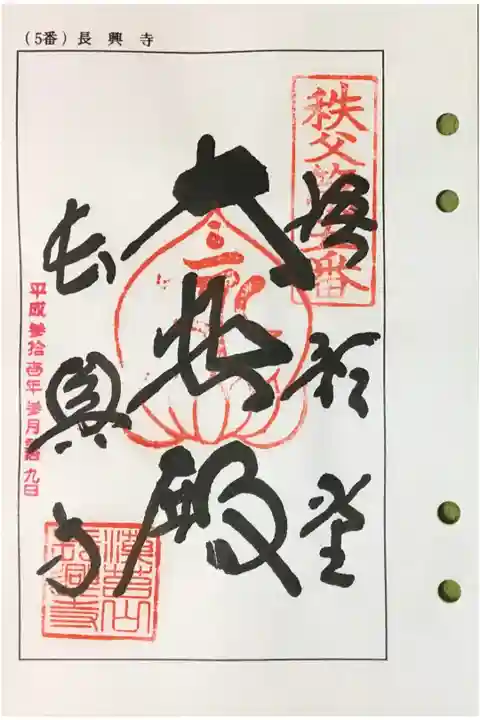 (5番) 長興寺
秩父第五番
語歌堂
大悲殿
長興寺
平成参拾壱年参月弐拾九日